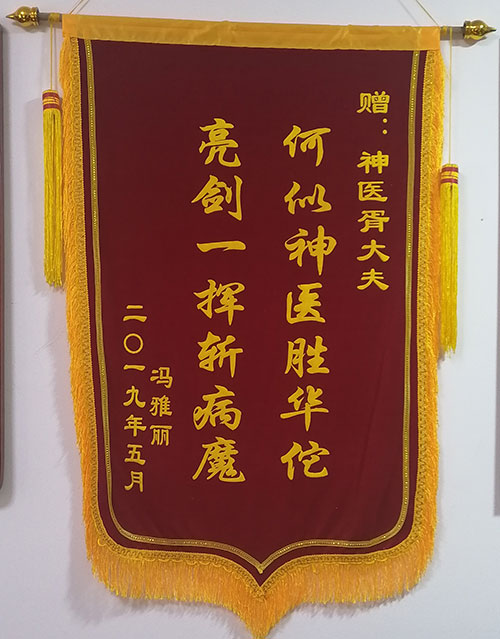 赠：神医胥大夫
何似神医胜华佗
亮剑一挥斩病魔
冯雅丽
二〇一九年五月